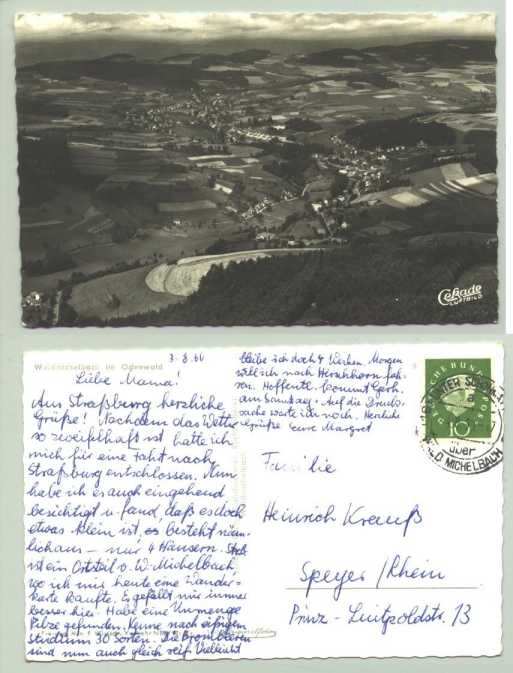 Cekade
LUFTBILD
Waldmichelbach im Odenwald
3.8.60
Liebe Mama!
Aus Straßburg herzliche
Grüße! Nachdem das Wetter
so zweifelhaft ist hatte ich
mich für eine Fahrt nach
Straßburg entschlossen. Nun
habe ich es auch eingehend
besichtigt u. fand, daß es doch
etwas klein ist, es besteht näm-
lich aus – nur 4 Häusern. Stbg
ist ein Ortsteil v. W-Michelbach,
wo ich mir heute eine Wander-
karte kaufte. Es gefällt mir immer
besser hier. Habe eine Unmenge
Pilze gefunden. Kenne nach eifrigem
Studium 30 Sorten. Die Brombeeren
sind nun auch gleich reif. Vielleicht
bleibe ich doch 4 Wochen. Morgen
will ich nach Hirschhorn fah-
ren. Hoffentl. kommt Gerh.
am Samstag. Auf die Druck-
sache warte ich noch. Herzliche
Grüße Eure Margret
DEUTSCHE BUNDESPOST
10
über
WALD-MICHELBACH
Familie
Heinrich Krauß
Speyer/Rhein
Prinz-Luitpoldstr. 13